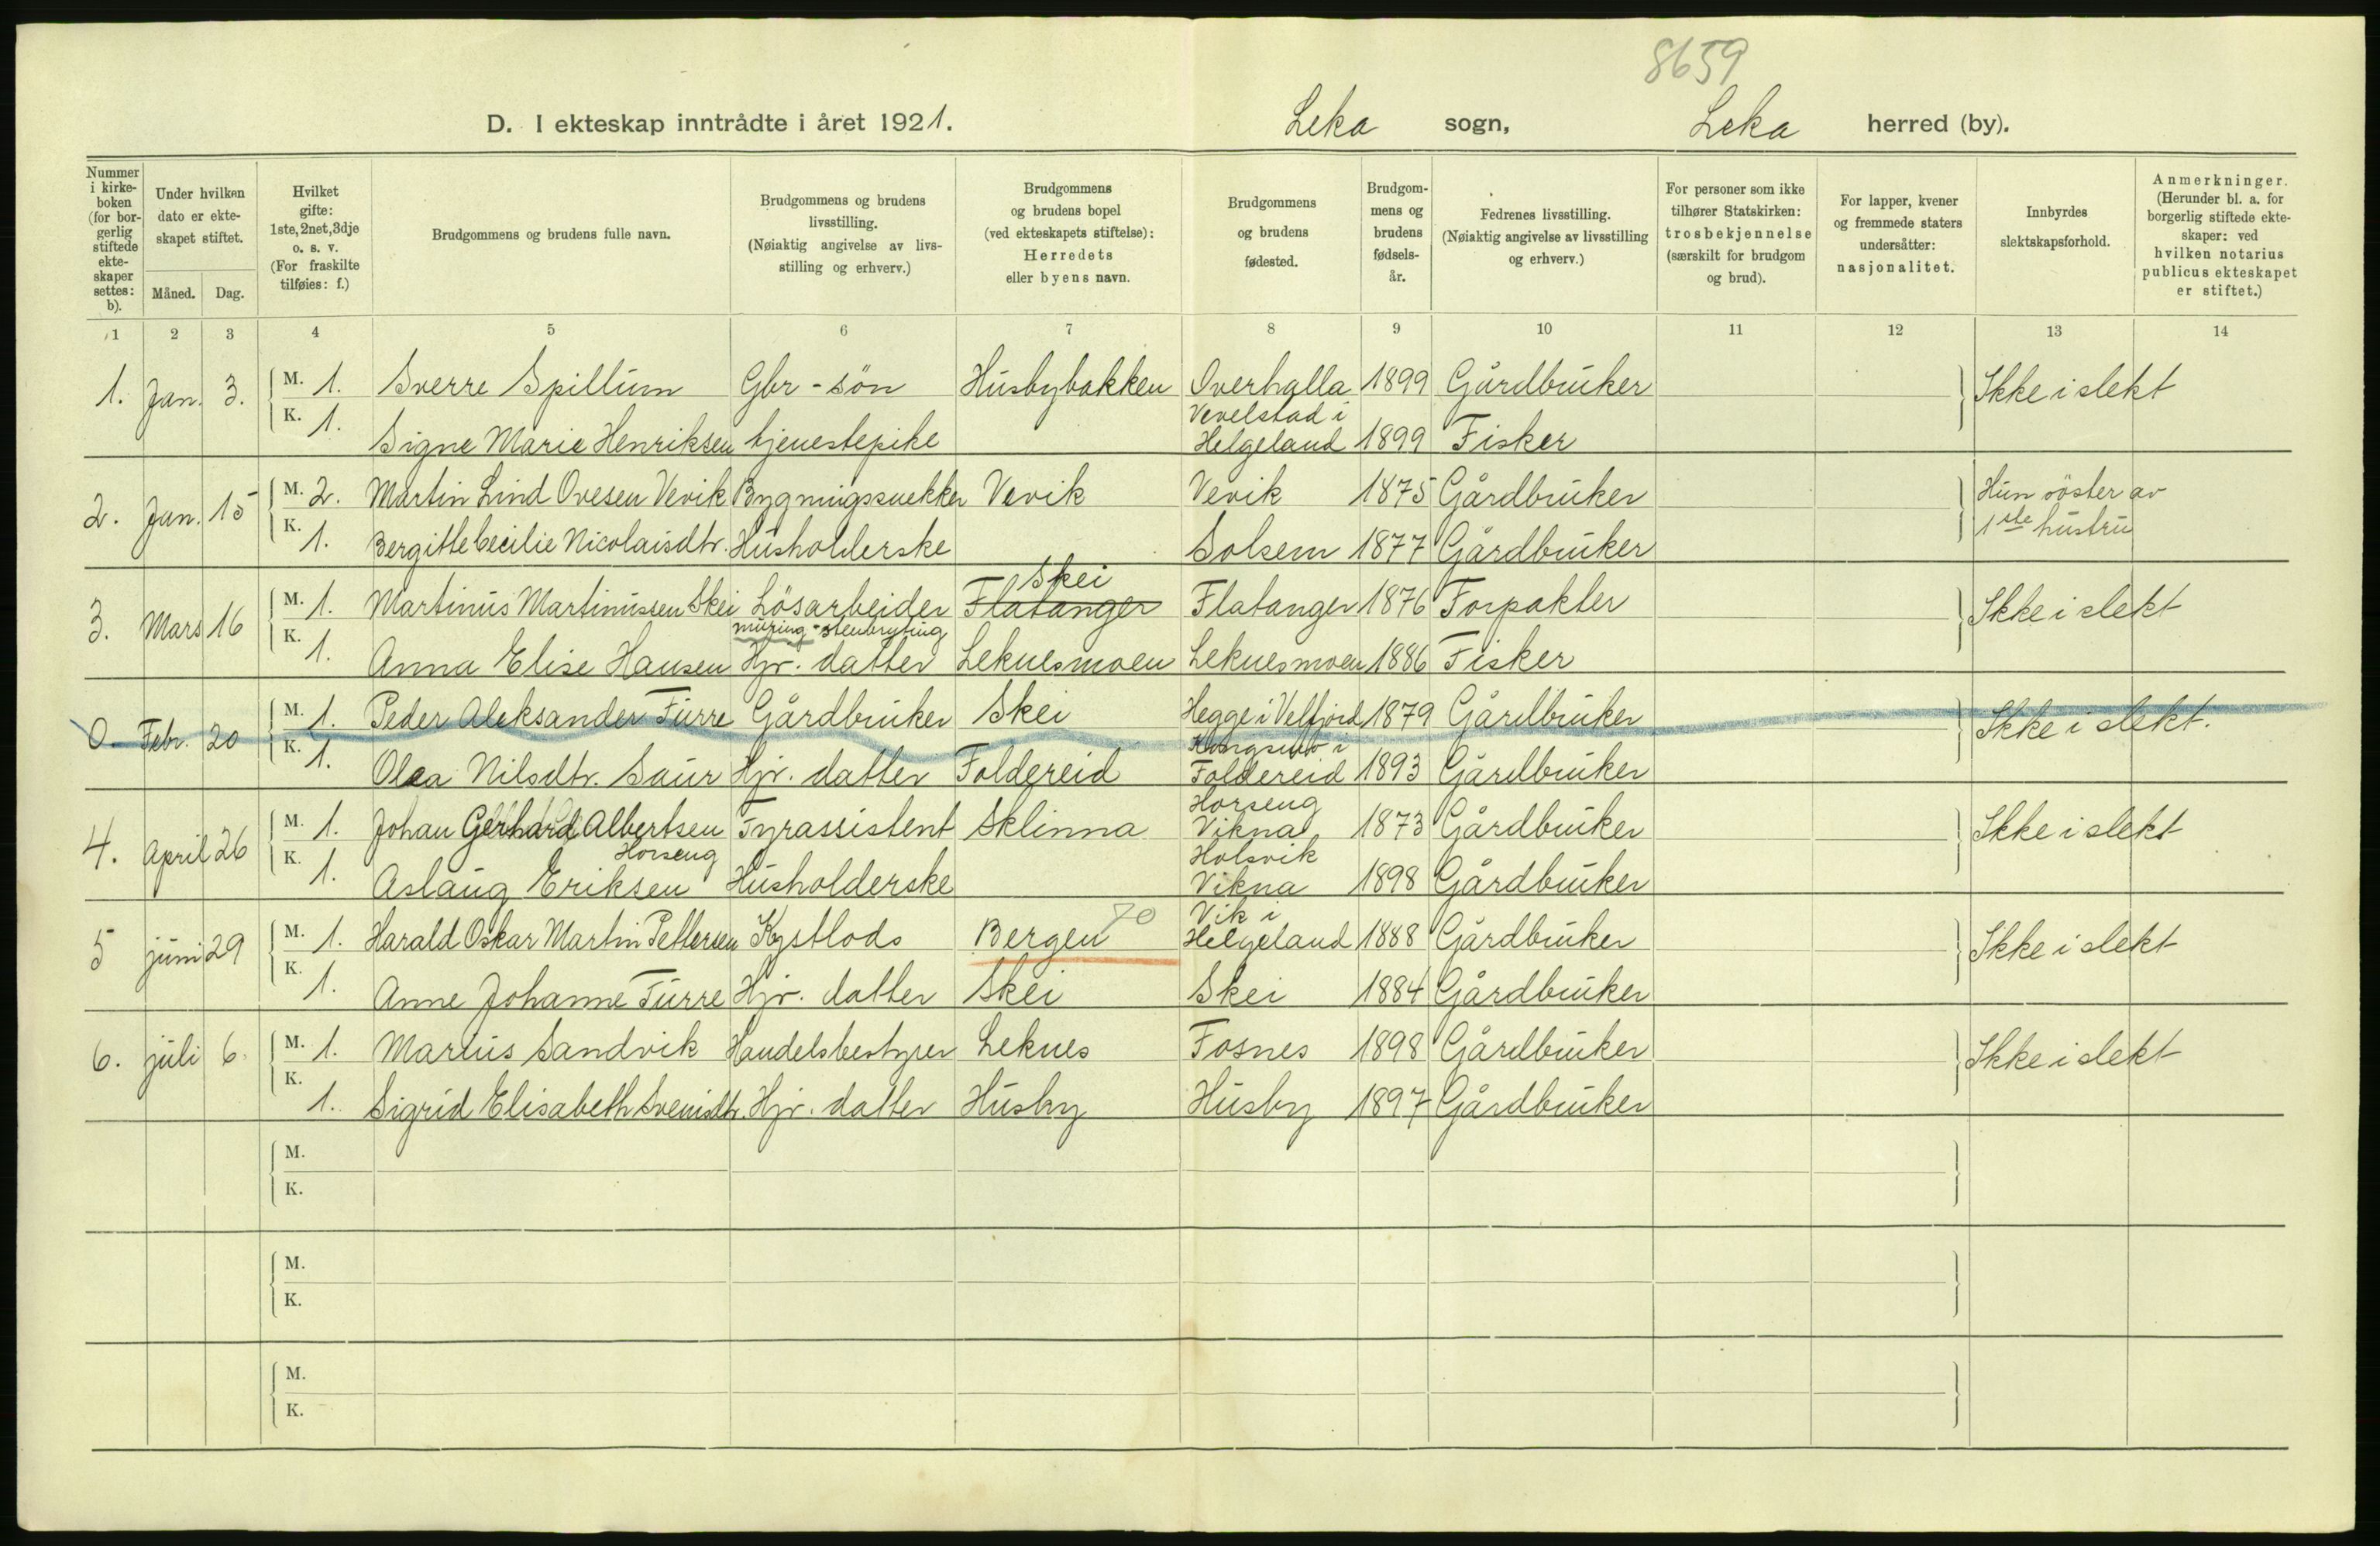 8659
D. I ekteskap inntrådte i året 1921. Leka sogn, Leka herred (by).
Nummer i kirke-boken (for bor-gerlig stiftede ekte-skaper settes: b).
Under hvilken dato er ekte-skapet stiftet.
Måned. Dag.
Hvilket gifte: 1ste, 2net, 3dje o. s. v. (For fraskilte tilføies: f.)
Brudgommens og brudens fulle navn.
Brudgommens og brudens livsstilling. (Nøiaktig angivelse av livs-stilling og erhverv.)
Brudgommens og brudens bopel (ved ekteskapets stiftelse): Herredets eller byens navn.
Brudgommens og brudens fødested.
Brudgom-mens og brudens fødsels-år.
Fedrenes livsstilling. (Nøiaktig angivelse av livsstilling og erhverv.)
For personer som ikke tilhører Statskirken: trosbekjennelse (særskilt for brudgom og brud).
For lapper, kvener og fremmede staters undersåtter: nasjonalitet.
Innbyrdes slektskapsforhold.
Anmerkninger. (Herunder bl. a. for borgerlig stiftede ekte-skaper: ved hvilken notarius publicus ekteskapet er stiftet.)
1 2 3 4 5 6 7 8 9 10 11 12 13 14
1. Jan. 3. M. 1. Sverre Spillum Gbr-sön Husbybakken Overhalla 1899 Gårdbruker Ikke i slekt
Vevelstad i
K. 1. Signe Marie Henriksen tjenestepike Helgeland 1899 Fisker
2. Jan. 15 M. 2. Martin Lind Ovesen Vevik Bygningssnekker Vevik Vevik 1875 Gårdbruker Hun söster av
1ste hustru
K. 1. Bergitte Cecilie Nicolaisdtr. Husholderske Solsem 1877 Gårdbruker
Skei
3. Mars 16 M. 1. Martinus Martinussen Skei Lösarbeider Flatanger Flatanger 1876 Forpakter Ikke i slekt
muring - stenbryting
K. 1. Anna Elise Hansen Hjr. datter Leknesmoen Leknesmoen 1886 Fisker
0. Febr. 20 M. 1. Peder Aleksander Furre Gårdbruker Skei Hegge i Velfjord 1879 Gårdbruker Ikke i slekt.
Kongsmo i
K. 1. Olea Nilsdtr. Saur Hjr. datter Foldereid Foldereid 1893 Gårdbruker
Horseng
4. April 26 M. 1. Johan Gerhard Albertsen Fyrassistent Sklinna Vikna 1873 Gårdbruker Ikke i slekt
Horseng Holsvik
K. 1. Aslaug Eriksen Husholderske Vikna 1898 Gårdbruker
70 Vik i
5 juni 29 M. 1. Harald Oskar Martin Pettersen Kystlods Bergen Helgeland 1888 Gårdbruker Ikke i slekt
K. 1. Anne Johanne Furre Hjr. datter Skei Skei 1884 Gårdbruker
6. juli 6. M. 1. Marius Sandvik Handelsbestyrer Leknes Fosnes 1898 Gårdbruker Ikke i slekt
K. 1. Sigrid Elisabeth Svenisdtr. Hjr. datter Husby Husby 1897 Gårdbruker
M.
K.
M.
K.
M.
K.